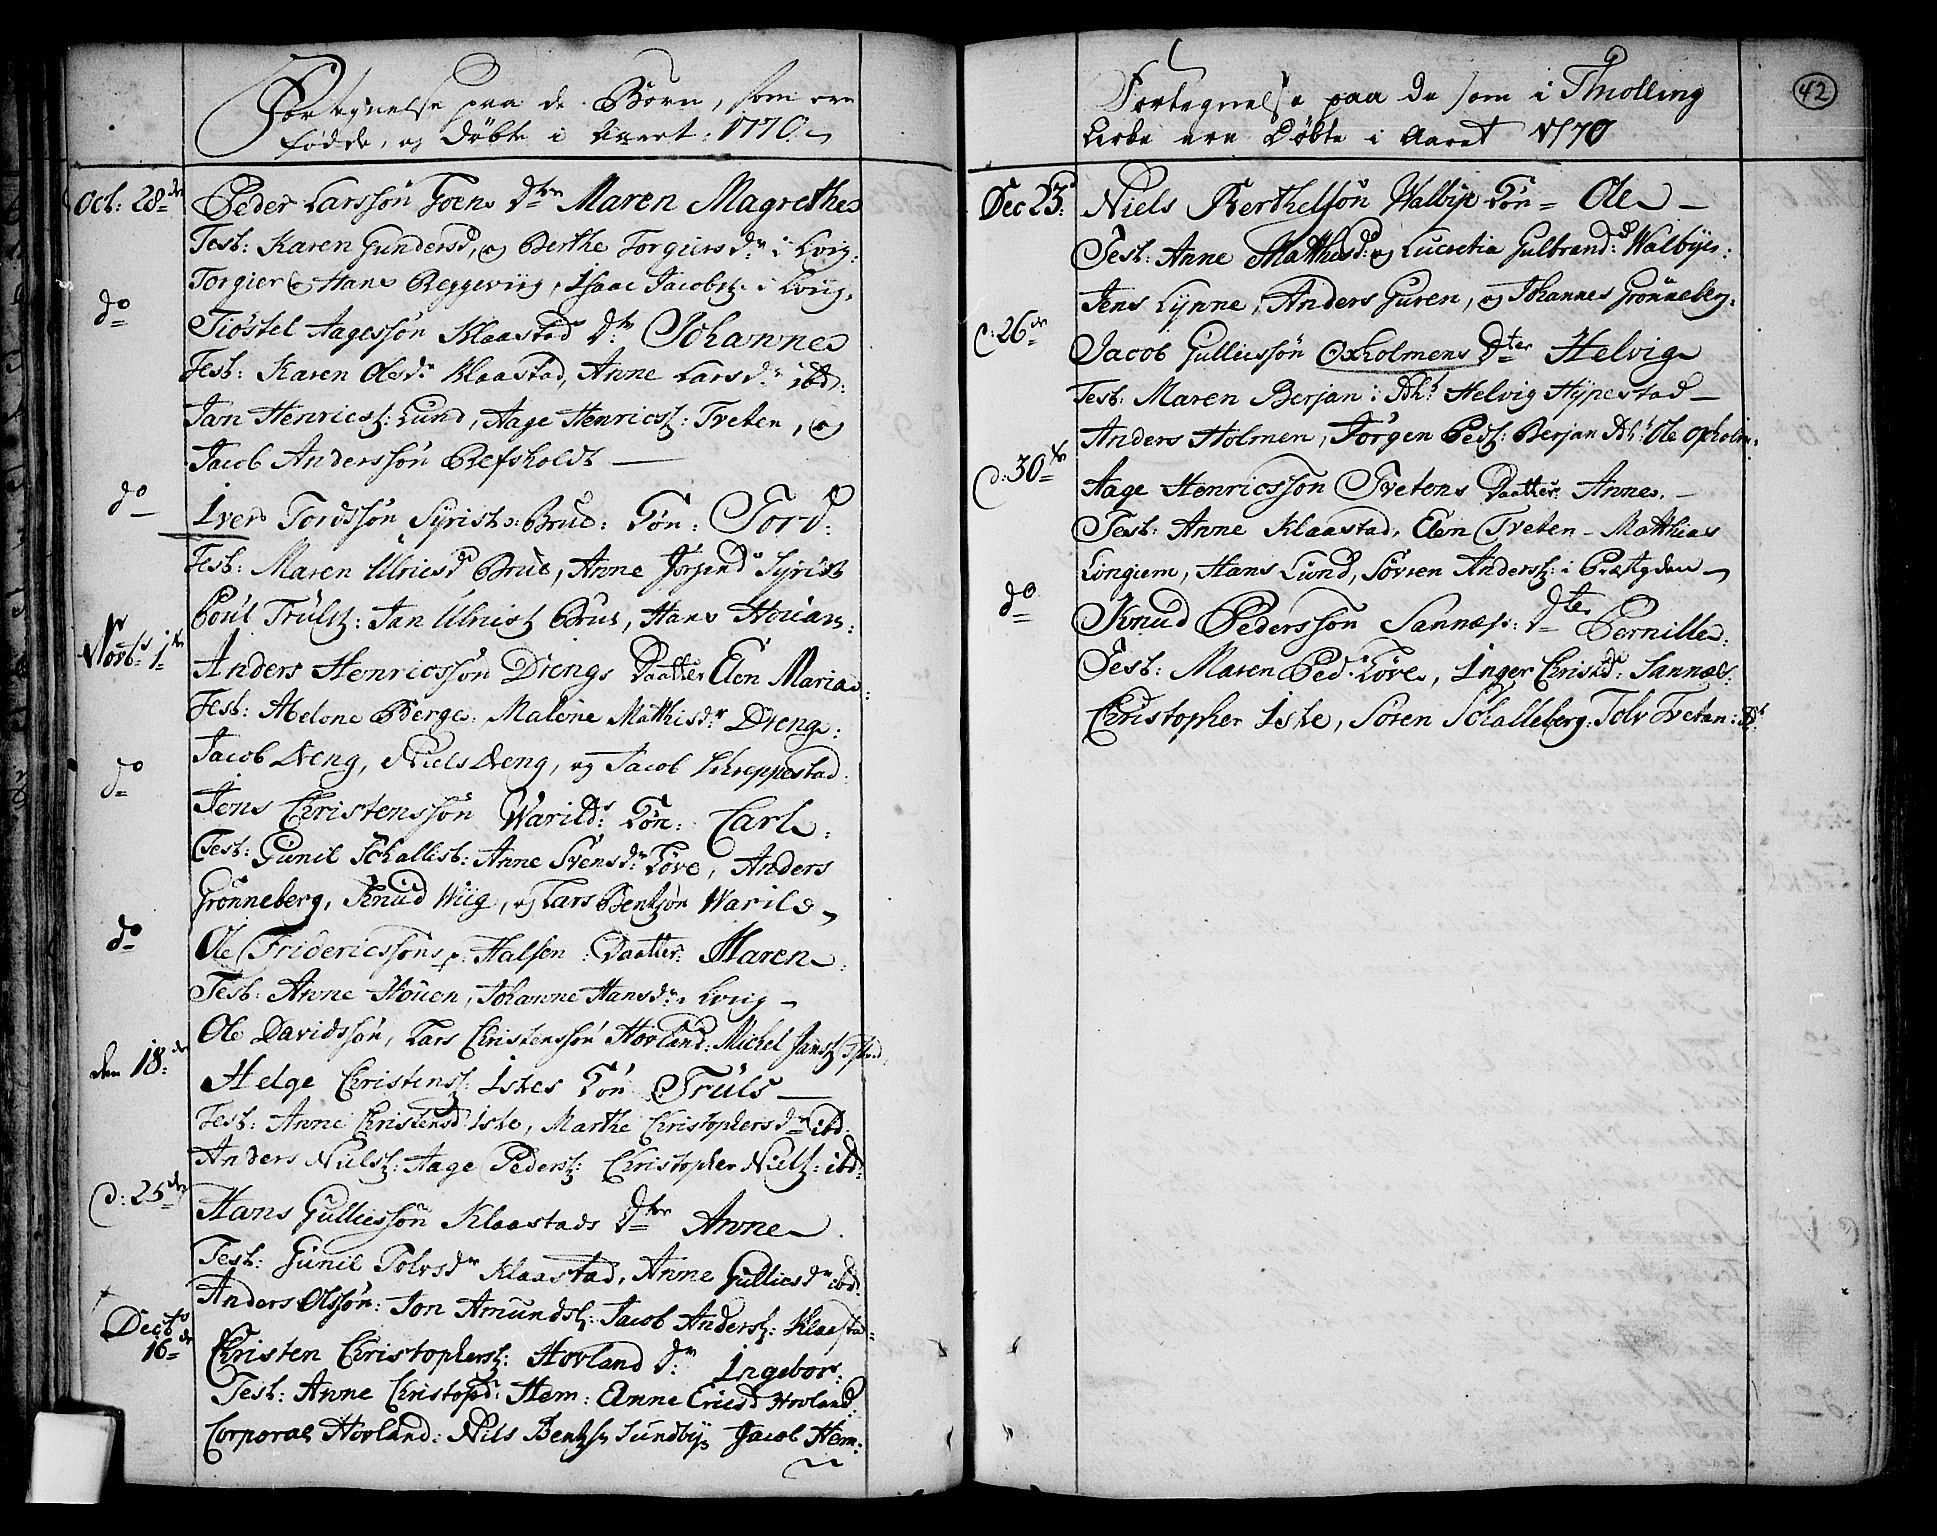 Fortegnelse paa de Børn, som ere
fødde, og Døbte i Aaret: 1770.
Oct: 28de Peder Larssøn Foens Dtr Maren Magrethe
Test: Karen Gundersd, og Berthe Torgiersdr i Lvig:
Torgier og Hans Reggeviig, Isaac Jacobsz: i Lvig.
do Tiøstel Aagessøn Klaastad Dtr Johanne
Test: Karen Olesdr Klaastad, Anne Larsdr ibd:
Jan Henricsz: Lund, Aage Henricsz: Tveten, og
Jacob Anderssøn Refsholdt
do Iver Tordssøn Syrist: Brue: Søn: Tord:
Test: Maren Ulricsd Brue, Anne Jørgensd Syrist
Poul Trulsz: Jan Ulricsz Brue, Hans Houan:
Novbr 1te Anders Henricssøn Drengs Daatter Elen Maria:
Test: Abelone Berge: Malene Mathisdr Dreng:
Jacob Dreng, Niels Dreng, og Jacob Skreppestad.
do Jens Christenssøn Warilds: Søn: Carl:
Test: Gunil Schallisb: Anne Svensdr Løve, Anders
Grønneberg, Knud Wiig, og Lars Bentsøn Warild
do Ole Fridericssøns Halsen: Daatter: Maren
Test: Anne Houen, Johanne Hansdr Lvig
Ole Davidssøn, Lars Christenssøn Hovland: Michel Jansz
den 18de Helge Christensz: Iskes Søn Truls
Test: Anne Christensd Iske, Marthe Christophersdr ibd:
Anders Nielsz: Aage Pedersz: Christopher Nielsz: ibd:
d: 25de Hans Gulliessøn Klaastads Dter Anne
Test: Gunil Tolvsdr Klaastad, Anne Gulliesdr ibd:
Anders Olssøn: Jon Amundsz: Jacob Andersz: Klaastad
Decbr 16de Christen Christophersz: Hovland Dr: Ingebor:
Test: Anne Christopd: Hem: Anne Ericsd Hovland:
Corporal Hovland: Nils Bentzs Sundby Jacob Hem:
42
Fortegnelse paa de som i Thiølling
Kirke ere Døbte i Aaret 1770
Dec 23: Niels Berthelsøn Walbye Søn Ole
Test: Anne Matthisd: og Lucretia Gulbrandsd: Walbye:
Jens Lynne, Anders Guren, og Johannes Grønneberg.
d: 26de Jacob Gulliessøn Oxholmens Dter Helvig
Test: Maren Berjan: Helvig Hÿpestad
Anders Holmen, Jørgen Pedsz: Berjan Ole Oxholm:
d: 30te Aage Henricssøn Tvetens Daatter Anne.
Test: Anne Klaastad, Elen Tveten - Matthias
Lingiem, Hans Lund, Søvren Andersz: i Præstgden
do Knud Pederssøn Sannæss: Dter Pernille:
Test: Maren Ped. Løve, Inger Christd: Sannæs:
Christopher Iske, Søren Schalleberg: Tolv Tvetan: